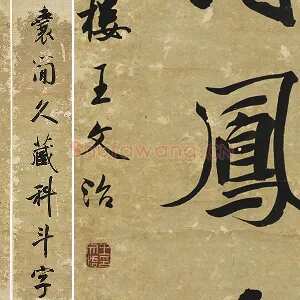 鳳
樓王文治
囊簡久藏科斗字